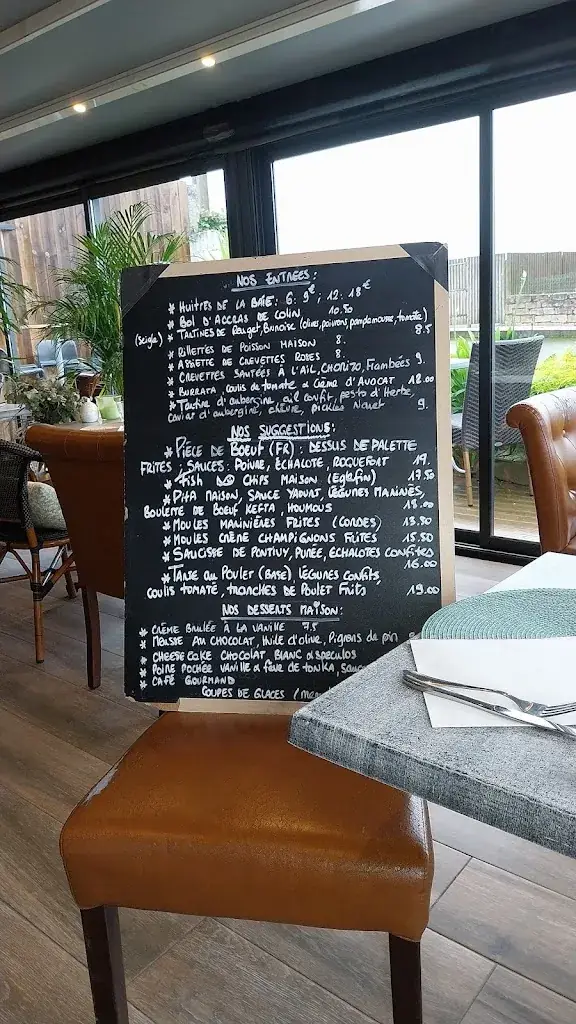 NOS ENTREES :
* HUITRES DE LA BAIE : 6 : 9€ ; 12 : 18€
* BOL D'ACCRAS DE COLIN 10.50
(seigle) * TARTINES DE Rouget, Brunoise (olives, poivrons, pamplemousse, tomate) 8.5
* RILLETTES DE POISSON MAISON 8.
* ASSIETTE DE CREVETTES ROSES 8.
* CREVETTES SAUTÉES À L'AIL, CHORIZO, Flambées 9.
* BURRATA, coulis de tomate & Crème D'AVOCAT 12.00
* Tartine d'aubergine, ail confit, pesto d'Herbe,
caviar d'aubergine, chèvre, pickles Navet 9.
NOS SUGGESTIONS :
* PIÈCE DE BOEUF (FR) : DESSUS DE PALETTE
FRITES ; SAUCES : POIVRE, ÉCHALOTE, ROQUEFORT 19.
* Fish and CHIPS MAISON (Eglefin) 17.50
* PITA MAISON, SAUCE YAOURT, LÉGUMES MARINÉS,
BOULETTE DE BOEUF KEFTA, HOUMOUS 18.00
* MOULES MARINIÈRES FRITES (CORDES) 13.90
* MOULES CRÈME CHAMPIGNONS FRITES 15.50
* SAUCISSE DE PONTIVY, PURÉE, ECHALOTES CONFITES
16.00
* TARTE au POULET (BASE) LÉGUMES CONFITS,
COULIS TOMATE, TRANCHES DE POULET FRITS 19.00
NOS DESSERTS MAISON :
* CRÈME BRULÉE À LA VANILLE 7.5
* MOUSSE AU CHOCOLAT, Huile d'olive, Pignons de pin 9
* CHEESECAKE CHOCOLAT BLANC & SPECULOS
* POIRE POCHÉE VANILLE & FÈVE DE TONKA,
* CAFÉ GOURMAND
COUPES DE GLACES